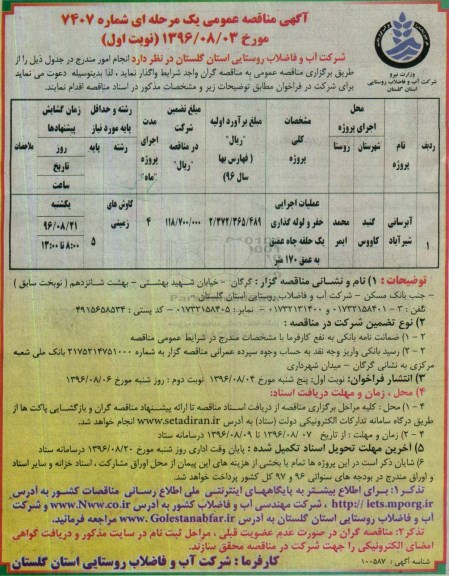 آگهی مناقصه عمومی یک مرحله ای شماره ۷۴۰۷
مورخ ۱۳۹۶/۰۸/۰۳ (نوبت اول)
وزارت نیرو
شرکت آب و فاضلاب روستایی
استان گلستان
شرکت آب و فاضلاب روستایی استان گلستان در نظر دارد انجام امور مندرج در جدول ذیل را از
طریق برگزاری مناقصه عمومی به مناقصه گران واجد شرایط واگذار نماید ، لذا بدینوسیله دعوت می نماید
برای شرکت در فراخوان مطابق توضیحات زیر و مشخصات مذکور در اسناد مناقصه اقدام نمایند.
ردیف
نام پروژه
محل اجرای پروژه
شهرستان
روستا
مشخصات کلی پروژه
مبلغ برآورد اولیه "ریال" ( فهارس بها سال ۹۶)
مبلغ تضمین شرکت در مناقصه "ریال"
مدت اجرای پروژه "ماه"
رشته و حداقل پایه مورد نیاز
رشته
پایه
زمان گشایش پیشنهادها
روز
تاریخ
ساعت
ملاحضات
۱
آبرسانی شیرآباد
گنبد کاووس
محمد ایمر
عملیات اجرایی حفر و لوله گذاری یک حلقه چاه عمیق به عمق ۱۷۰ متر
۲/۳۷۲/۳۶۵/۴۸۹
۱۱۸/۷۰۰/۰۰۰
۴
کاوش های زمینی
۵
یکشنبه
۹۶/۰۸/۲۱
۸:۰۰ تا ۱۳:۰۰
توضیحات : ۱) نام و نشانی مناقصه گزار : گرگان – خیابان شهید بهشتی – بهشت شانزدهم ( نوبخت سابق )
– جنب بانک مسکن – شرکت آب و فاضلاب روستایی استان گلستان
تلفن : ۳ – ۰۱۷۳۲۱۵۸۴۰۱ و ۰۱۷۳۲۱۳۱۴۰۰ – نمابر : ۰۱۷۳۲۱۵۸۴۰۵ – کد پستی : ۴۹۱۵۶۵۸۵۳۴
۲) نوع تضمین شرکت در مناقصه :
۱ – ۲) ضمانت نامه بانکی به نفع کارفرما با مشخصات مندرج در شرایط عمومی مناقصه
۲ – ۲) رسید بانکی واریز وجه نقد به حساب وجوه سپرده عمرانی مناقصه گزار به شماره ۲۱۷۵۲۱۴۷۵۱۰۰۰ بانک ملی شعبه
مرکزی به نشانی گرگان – میدان شهرداری
۳) انتشار فراخوان: نوبت اول: پنج شنبه مورخ ۱۳۹۶/۰۸/۰۴ نوبت دوم : روز شنبه مورخ ۱۳۹۶/۰۸/۰۶
۴) محل ، زمان و مهلت دریافت اسناد:
۱ – ۴) محل : کلیه مراحل برگزاری مناقصه از دریافت اسناد مناقصه تا ارائه پیشنهاد مناقصه گران و بازگشایی پاکت ها از
طریق درگاه سامانه تدارکات الکترونیکی دولت (ستاد) به آدرس www.setadiran.ir انجام خواهد شد.
۲ – ۴) زمان و مهلت : از تاریخ ۱۳۹۶/۰۸/۰۷ تا ۱۳۹۶/۰۸/۰۹ درسامانه ستاد
۵) آخرین مهلت تحویل اسناد تکمیل شده : پایان وقت اداری روز شنبه مورخ ۱۳۹۶/۰۸/۲۰ درسامانه ستاد
۶) شایان ذکر است در این پروژه ها تمام یا بخشی از هزینه های این پیمان از محل اوراق مشارکت ، اسناد خزانه و سایر اسناد
و اوراق مندرج در بودجه های سنواتی ۹۶ و ۹۷ کل کشور پرداخت خواهد شد.
تذکر۱: برای اطلاع بیشتر به پایگاههای اینترنتی ملی اطلاع رسانی مناقصات کشور به آدرس
http:// iets.mporg.ir ، شرکت مهندسی آب و فاضلاب کشور به آدرس www.Nww.co.ir و شرکت
آب و فاضلاب روستایی استان گلستان به آدرس www.Golestanabfar.ir مراجعه فرمائید.
تذکر۲: مناقصه گران در صورت عدم عضویت قبلی ، مراحل ثبت نام در سایت مذکور و دریافت گواهی
امضای الکترونیکی را جهت شرکت در مناقصه محقق سازند.
کارفرما : شرکت آب و فاضلاب روستایی استان گلستان
شناسه آگهی : ۱۰۰۵۸۷